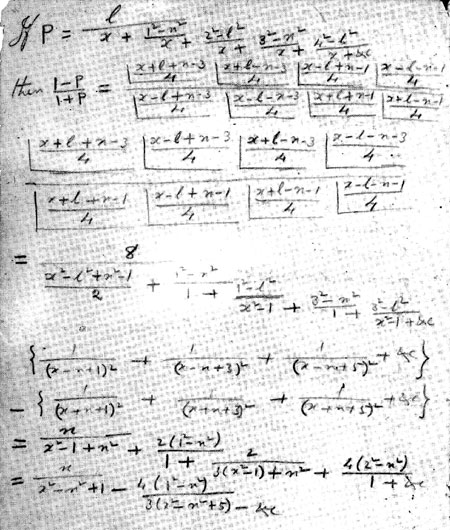 If P = l/x + 1²-n²/x + 2²-l²/x + 3²-n²/x + 4²-l²/x+&c
then 1-P/1+P = |x+l+n-3/4 |x+l-n-3/4 |x-l+n-1/4 |x-l-n-1/4
|x-l+n-3/4 |x-l-n-3/4 |x+l+n-1/4 |x+l-n-1/4
|x+l+n-3/4 |x-l+n-3/4 |x+l-n-3/4 |x-l-n-3/4
|x+l+n-1/4 |x-l+n-1/4 |x+l-n-1/4 |x-l-n-1/4
= 8/x²-l²+n²-1/2 + 1²-n²/1 + 1²-l²/x²-1 + 3²-n²/1 + 3²-l²/x²-1+&c
{1/(x-n+1)² + 1/(x-n+3)² + 1/(x-n+5)² + &c}
- {1/(x+n+1)² + 1/(x+n+3)² + 1/(x+n+5)² + &c}
= n/x²-1+n² + 2(1²-n²)/1 + 2/3(x²-1)+n² + 4(2²-n²)/1+&c
= n/x²-n²+1 - 4(1²-n²)/3(x²-n²+5) - &c